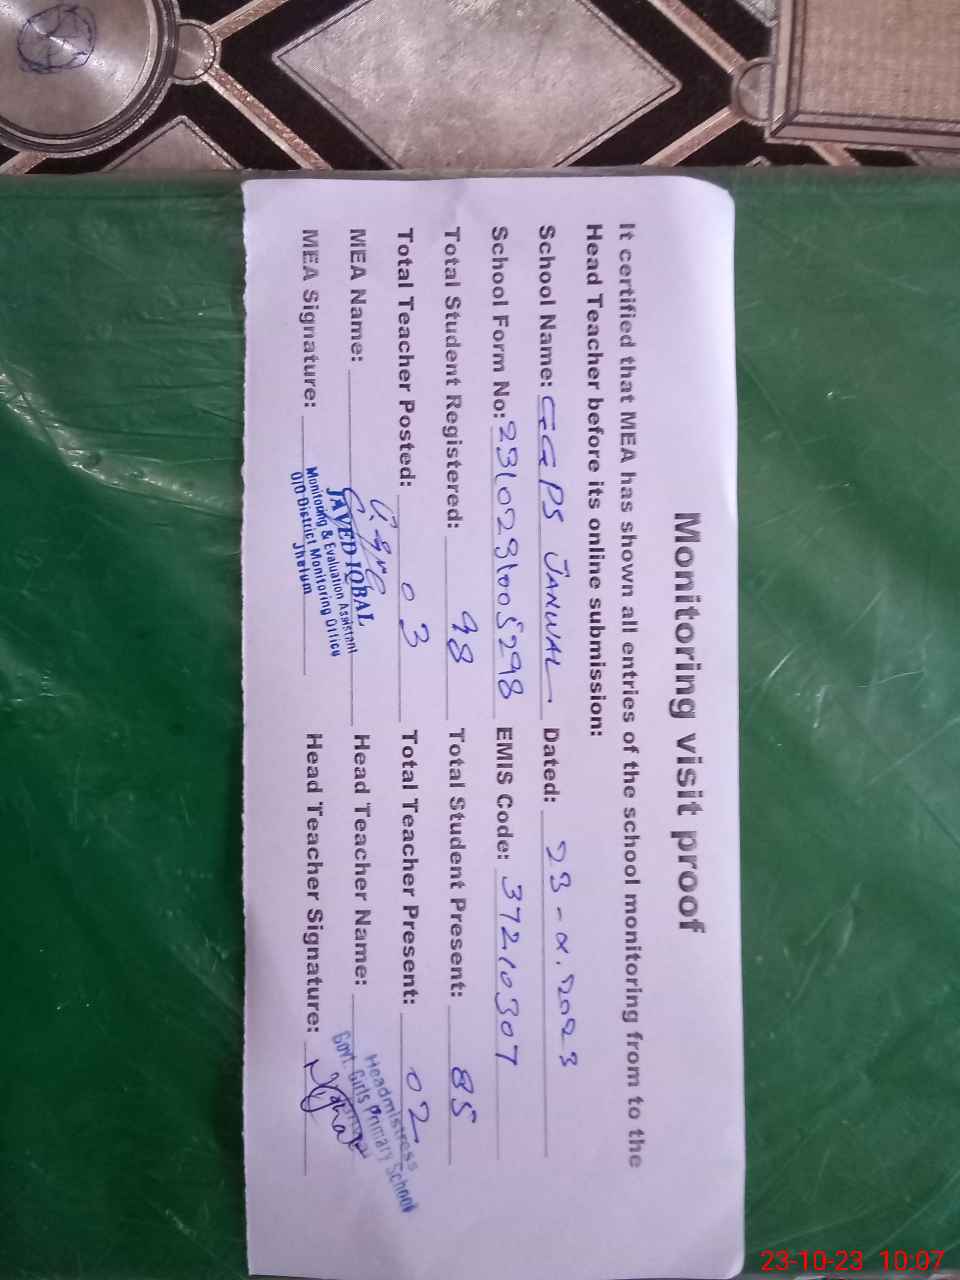 Monitoring visit proof
It certified that MEA has shown all entries of the school monitoring from to the
Head Teacher before its online submission:
School Name: GGPS JANWAL Dated: 23-X-2023
School Form No: 2310231005298 EMIS Code: 37210307
Total Student Registered: 98 Total Student Present: 85
Total Teacher Posted: 03 Total Teacher Present: 02
MEA Name: Head Teacher Name:
MEA Signature: Head Teacher Signature:
JAVED IQBAL
Monitoring & Evaluation Assistant
O/O District Monitoring Office
Jhelum
Headmistress
Govt. Girls Primary School
23-10-23 10:07